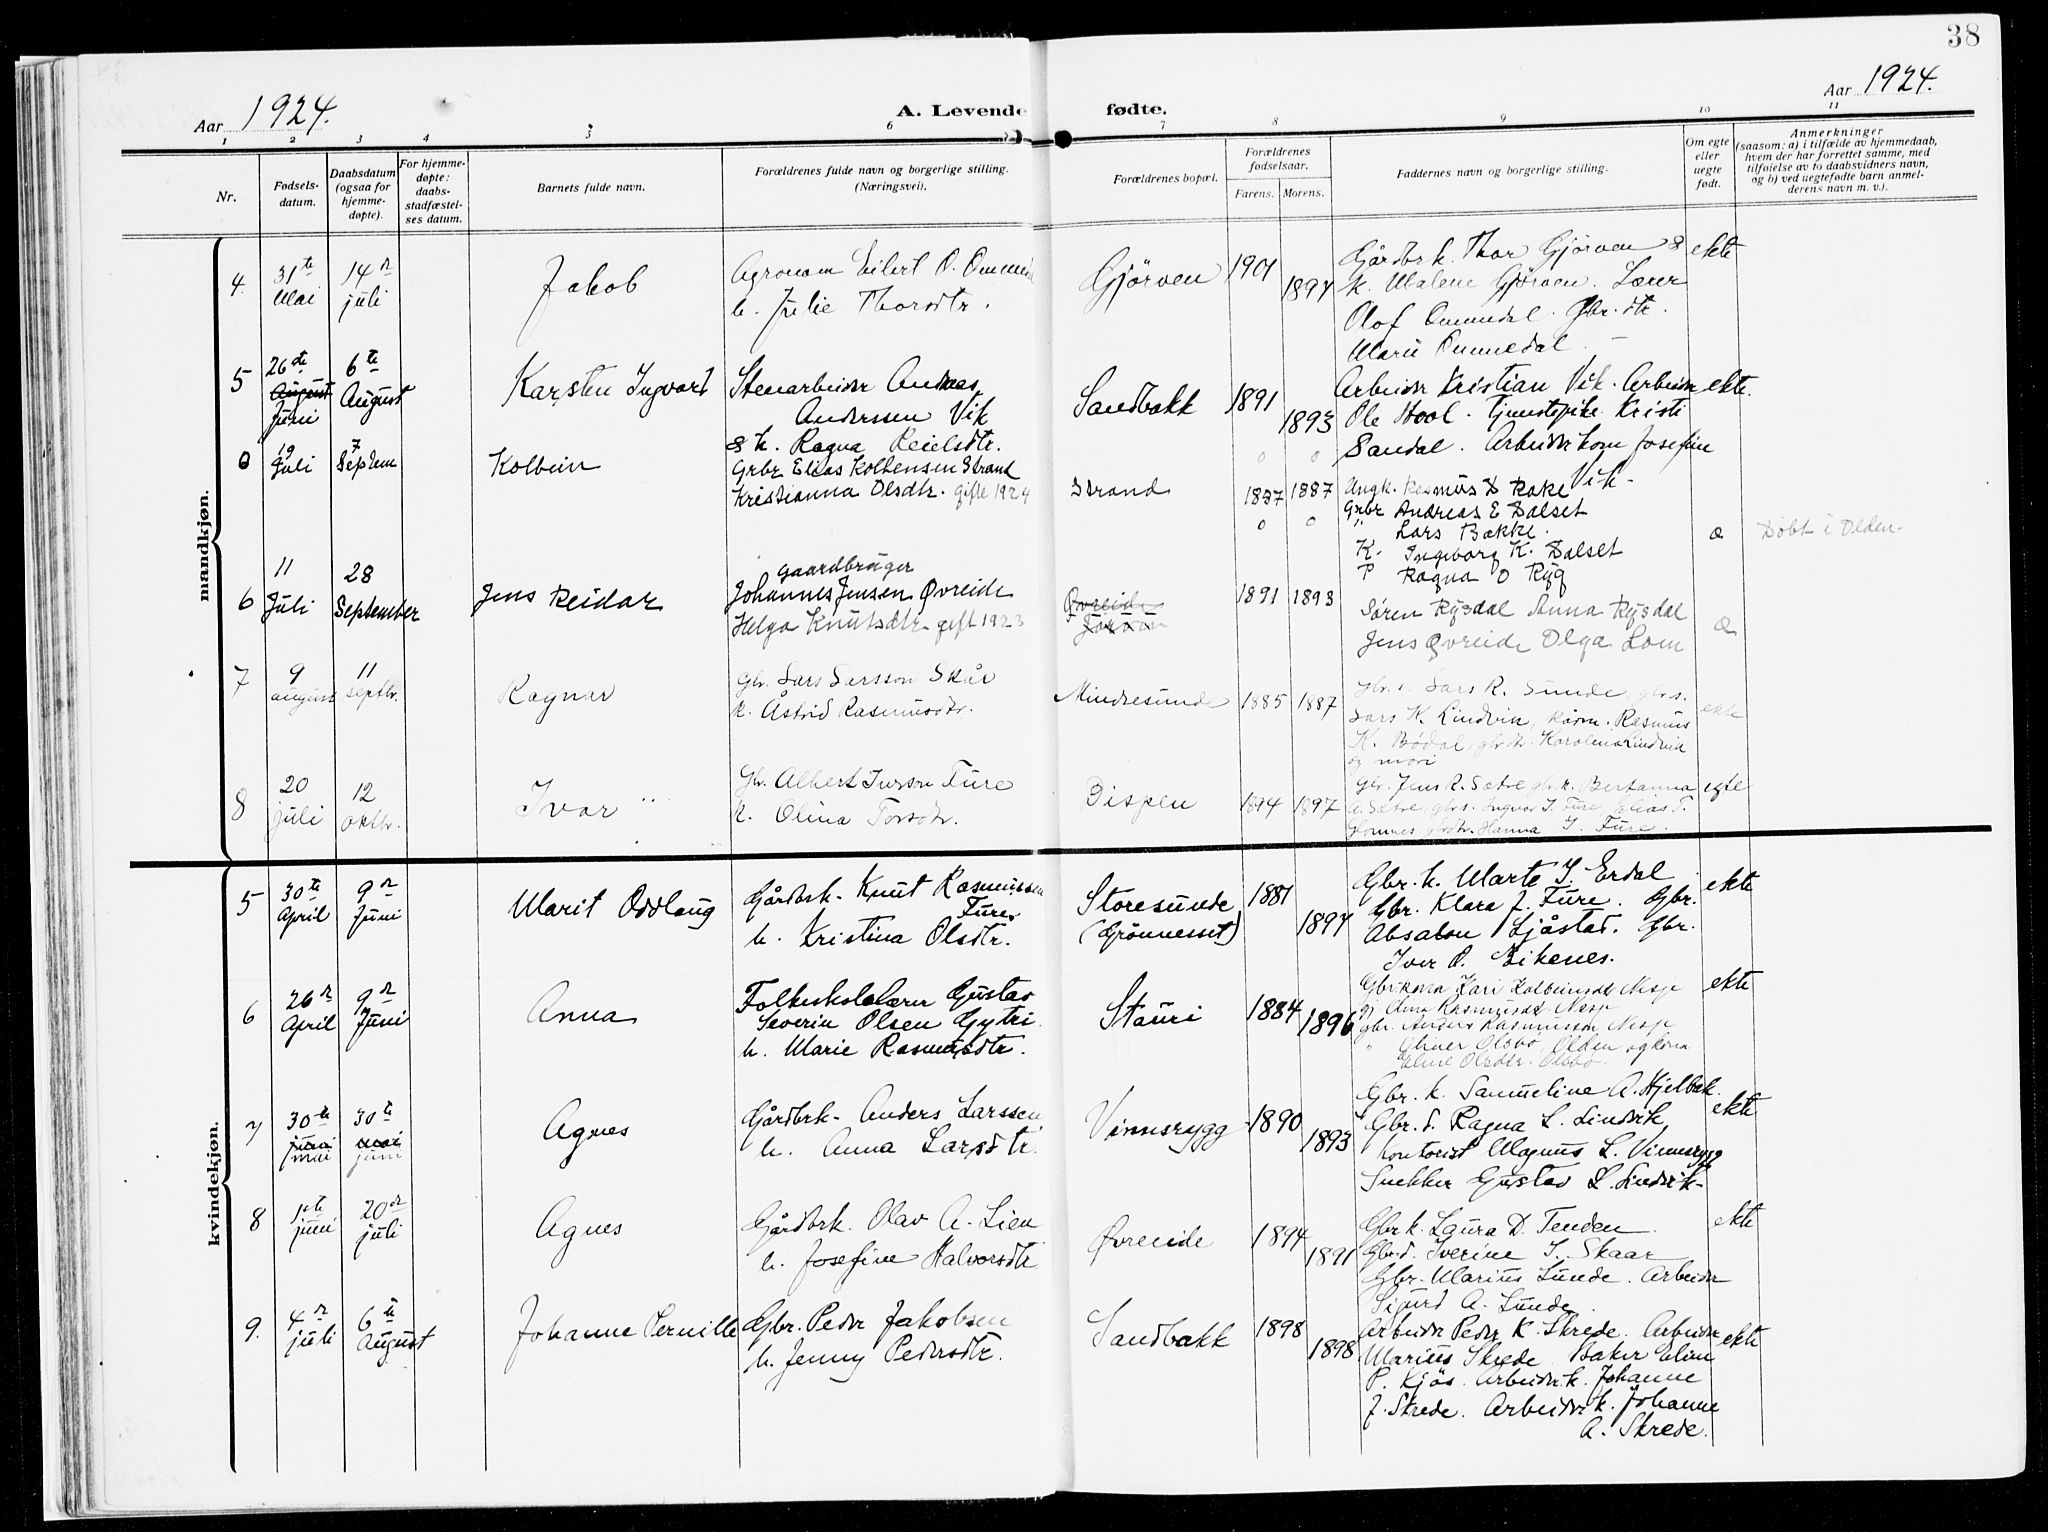 38
Aar 1924.
A. Levende fødte.
Aar 1924.
1 2 3 4 5 6 7 8 9 10 11
Nr.
Fødsels-
datum.
Daabsdatum
(ogsaa for
hjemme-
døpte).
For hjemme-
døpte:
daabs-
stadfæstel-
ses datum.
Barnets fulde navn.
Forældrenes fulde navn og borgerlige stilling.
(Næringsvei).
Forældrenes bopæl.
Forældrenes
fødselsaar.
Farens. Morens.
Faddernes navn og borgerlige stilling.
Om egte
eller
uegte
født.
Anmerkninger
(saasom: a) i tilfælde av hjemmedaab,
hvem der har forrettet samme, med
tilføielse av to daabsvidners navn,
og b) ved uegtefødte barn anmel-
derens navn m. v.).
mandkjøn.
4. 31te Mai 14de juli
Jakob
Agronom Eilert O.
k. Julie Thorsdtr.
Gjörven
1901 1897
Gårdbr k. Thor Gjörven &
k. Malene Gjörven. Lærer
Olof Ommedal. Gbr. dtr.
Marie Ommedal. —
ekte
5 26de August Juni 6te August
Karsten Ingvard
Stenarbeider Andreas
Anderssen Vik
& k. Ragna Reielsdtr.
Sandbakk
1891 1893
Arbeider Kristian Vik. Arbeider
Ole Hool. Tjenestepike Kristi
Sandal. Arbeider kone Josefine
Vik.
ekte.
0 19 Juli 7 Septem
Kolbein
Grbr Elias Kolbensen Strand
Kristianna Olsdtr. gifte 1924
Strand
1887 1887
Ungk. Rasmus D Rake
Grbr Andreas E Dalset
" Lars Bakke.
K. Ingeborg K. Dalset
P Ragna O Ryg
Døbt i Olden.
6 11 Juli 28 September
Jens Reidar
gaardbruger
Johannes Jensen Øvreide
Helga Knutsdtr. gift 1923
Øvreide
1891 1893
Søren Rysdal Anna Rysdal
Jens Øvreide Olga Lom
æ
7 9 august 11 septbr.
Ragnar
Gbr. Lars Larsson Skår
k. Åstrid Rasmusdtr.
Mindresunde
1885 1887
Gbr. s. Lars R. Sunde, gbr s.
Lars K. Lindvik, Rasmus
K. Bødal, gbr dtr. Karolina Lindvik
og mori
ekte
8 20 juli 12 oktbr.
Ivar
Gbr. Albert Iversen Fure
k. Olina Torsdtr.
Bispen
1894 1897
Gbr. Jens R. Sætre gbr. k. Bertanna
A. Sætre, gbr s. Ingvar I. Fure, Elias T.
Glomnes gbrdtr. Hanna I. Fure.
egte
kvindekjøn.
5 30te April 9de Juni
Marit Oddlaug
Gårdbrk. Knut Rasmussen
Fure
k. Kristina Olsdtr.
Storesunde
(Grönnesset)
1881 1897
Gbr. k. Marte I. Erdal
Gbr. Klara J. Fure. Gbr.
Absalon Sjåstad. Gbr.
Iver O. Eikenes.
ekte
6 26de April 9de Juni
Anna
Folkeskolelærer Gustav
Severin Olsen Gytri
k. Marie Rasmusdtr.
Stauri
1884 1896
Gbr kona Kari Kolbeinsdtr Nesje
Rasmusdtr Nesje
gbr. Anders Rasmussen Nesje
" Oliver Olsbø, Olden og kona
Eline Olsdtr. Olsbø.
ekte
7 30te juni mai 30te mai juni
Agnes
Gårdbrk. Anders Larssen
k. Anna Larsdtr.
Vinnsrygg
1890 1893
Gbr. k. Sammeline A. Hjelbak.
Gbr. d. Ragna L. Lindvik
Kontorist Magnus L. Vinnsrygg
Snekker Gustav L. Lindvik
ekte
8 1ste juni 20de juli
Agnes
Gårdbrk. Olav A. Lien
k. Josefine Halvorsdtr
Øvreeide
1894 1891
Gbr k. Laura D. Tenden
Gbr. d. Iverine I. Skaar
Gbr. Marius Sunde. Arbeider
Sigurd A. Sunde.
ekte
9. 4de juli 6te August
Johanne Pernille
Gbr. Peder Jakobsen
k. Jenny Pedersdtr.
Sandbakk
1898 1898
Arbeider Peder K. Skrede. Arbeider
Marius Skrede. Baker Elion
P. Kjös. Arbeider k. Johanne
J. Skrede. Arbeider k. Johanne
A. Skrede.
ekte